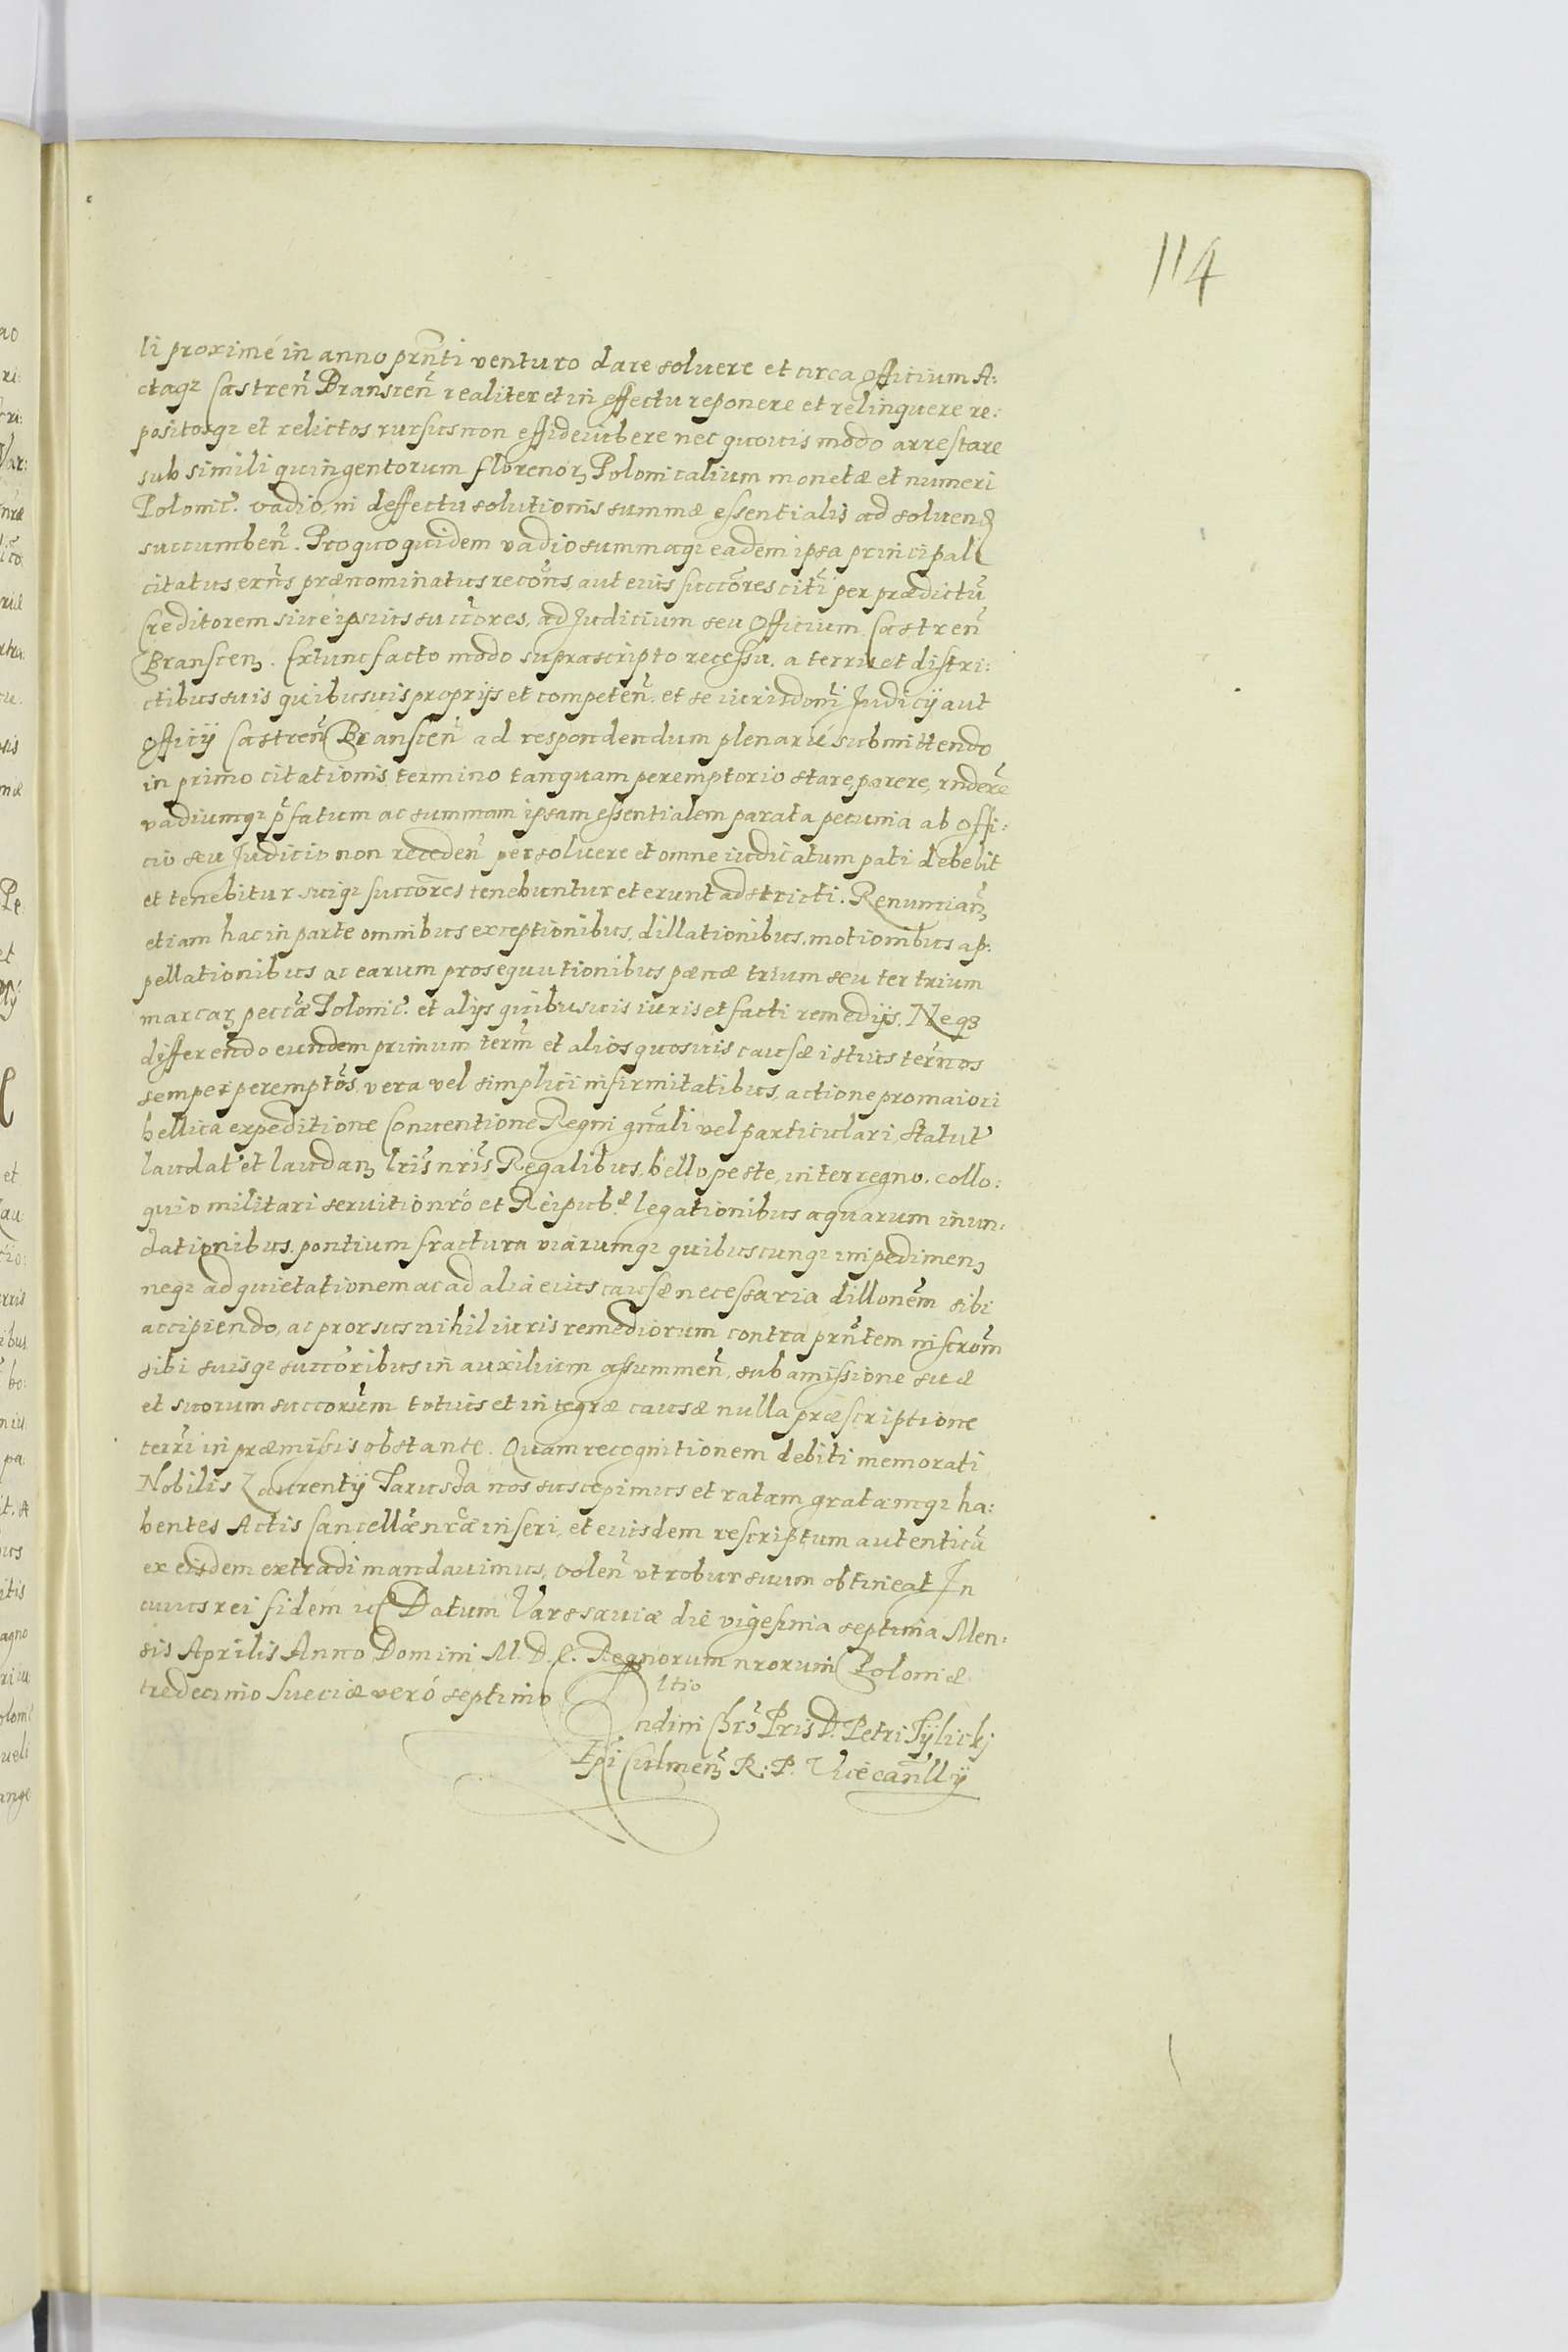 114
li proximé in anno prñti venturo dare soluere et circa Officium A:
ctaq; Castreñ Branscen̄ realiter et in effectu reponere et relinquere re:
positosq; et relictos rursus non effideiubere nec quouis modo arrestare
sub simili quingentorum florenorȝ Polonicalium monetæ et numeri
Polonic̃. vadio, in deffectu solutionis summæ essentialis ad soluend
succumben̄. Pro quo quidem vadio summaq; eadem ipsa principali
citatus exñs prænominatus recoñs, aut eius succõres citĩ per prædictũ
Creditorem siue ipsius succõres, ad Judicium seu Officium Castren̄
Branscenȝ. Extunc facto modo suprascripto recessu. a terris et distri:
ctibus suis quibusuis proprijs et competen̄. et se iurisdoñi Judicij aut
Officij Castren̄ Branscen̄ ad respondendum plenarié submittendo
in primo citationis termino tanquam peremptorio stare, parere, rnderẽ
vadiumq; p̃fatum ac summam ipsam essentialem parata pecunia ab Offi:
cio seu Judicio non receden̄ persoluere et omne iudicatum pati debebit
et tenebitur suiq; succõres tenebuntur et erunt adstricti. Renuncianȝ
etiam hac in parte omnibus exceptionibus, dillationibus, motionibus ap:
pellationibus ac earum prosequutionibus pænæ trium seu ter trium
marcarȝ peccũæ Polonic̃. et alijs quibusuis iuris et facti remedijs. Neqȝ
differendo eundem primum term̃ et alios quosuis causæ istius term̃os
semper peremptõs, vera vel simplici infirmitatibus, actione pro maiori
bellica expeditione Conuentione Regni gñali vel particulari, statut̃
laudat̃ et laudanȝ lr̃is nr̃is Regalibus, bello peste, interregno, collo:
quio militari seruitio nr̃o et Reipub.æ legationibus aquarum inun:
dationibus, pontium fractura viarumq; quibuscunq; impedimenȝ
neq; ad quietationem ac ad alia eius causæ necessaria dillonẽm sibi
accipiendo, ac prorsus nihil iuris remediorum contra prñtem inscrõm
sibi suisq; succõribus in auxilium assummen̄, sub amissione suæ
et suorum succorũm totius et integræ causæ nulla præscriptione
terrĩ in præmissis obstante. Quam recognitionem debiti memorati
Nobilis Laurentij Jarusda nos suscepimus et ratam gratamq; ha:
bentes Actis Cancellãe nr̃æ inseri, et eiusdem rescriptum autenticũ
ex eisdem extradi mandauimus, volen̄ vt robur suum obtineat In
cuius rei fidem uc Datum Varssauiæ die vigesima septima Men:
sis Aprilis Anno Domini M. D. C. Regnorum nrorum Poloniæ
tredecimo Sueciæ veró septimo
ltio
ndini Chrõ Pris D. Petri Tylicki
Epi Culmenȝ R. P. Vicecanlly